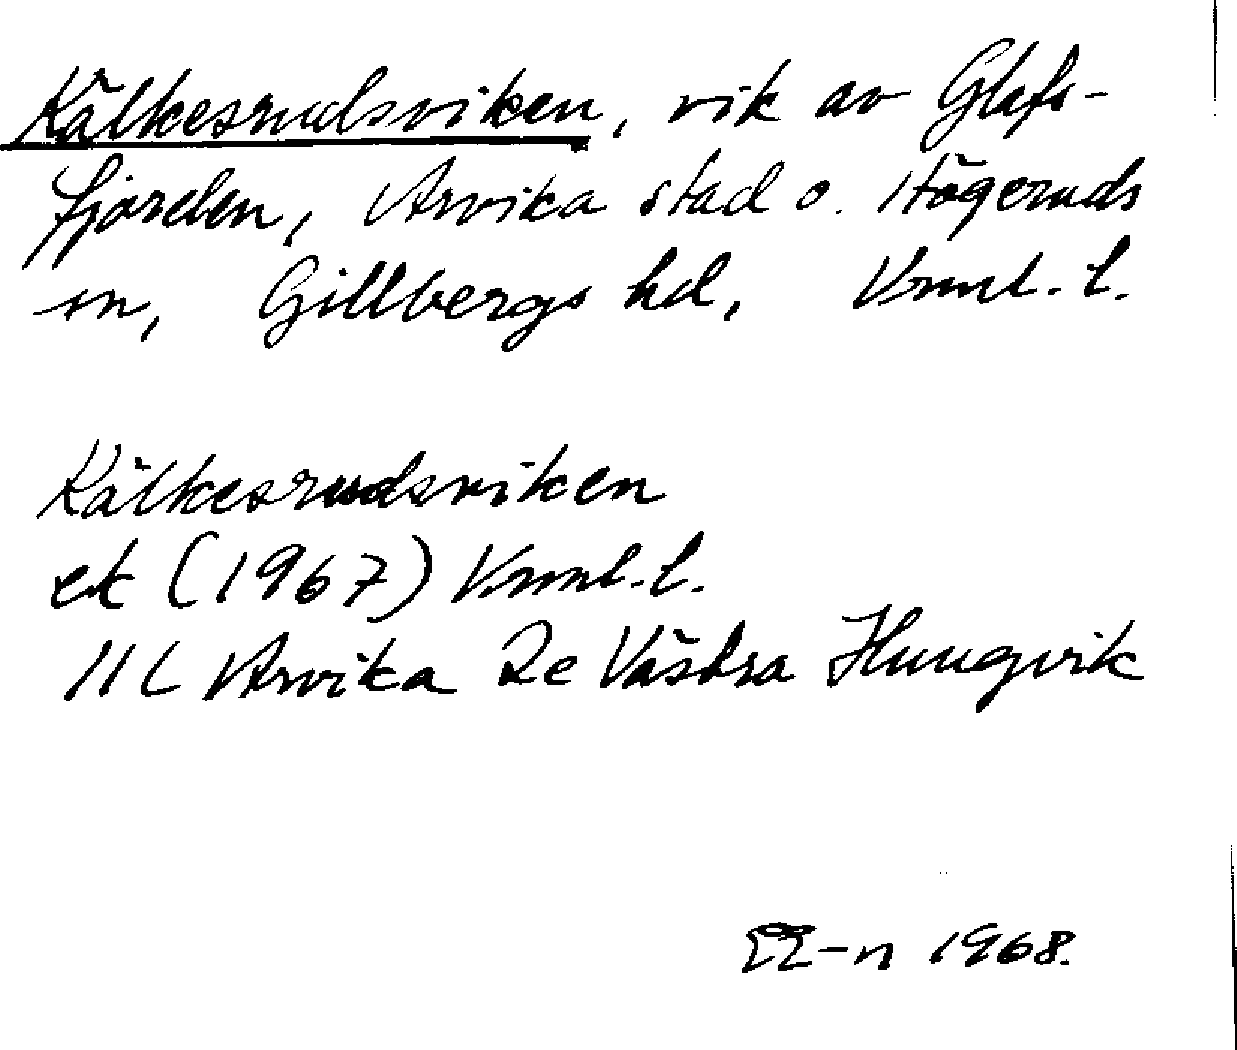 Kälkesrudsviken, vik av Glafs-
fjorden, Arvika stad o. Högeruds
sn, Gillbergs hd, Vrml. l.
Kälkesrudsviken
ek (1967) Vrml. l.
11C Arvika Västra Hungvik
1968.